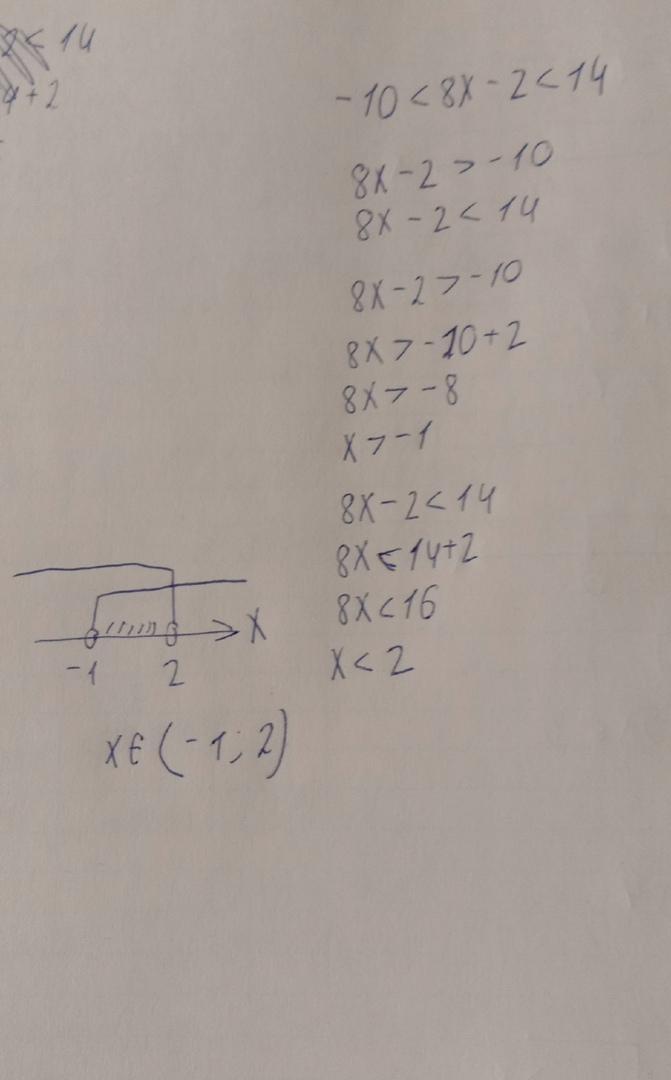 8 < 14
4+2
-10 < 8x - 2 < 14
8x - 2 > -10
8x - 2 < 14
8x - 2 > -10
8x > -10+2
8x > -8
x > -1
8x - 2 < 14
8x < 14+2
8x < 16
x < 2
x
-1 2
x ∈ (-1; 2)